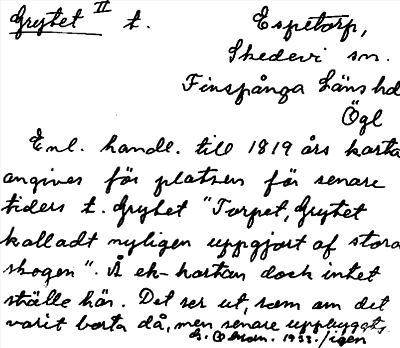 Grytet II t. Espetorp,
Skedevi sn.
Finspånga Länshd
Ögl
Enl. handl. till 1819 års karta
angives för platsen för senare
tiders t. Grytet "Torpet, Grytet
kalladt nyligen uppgjort af stora
skogen". Å ek-kartan dock intet
ställe här. Det ser ut, som om det
varit borta då, men senare uppbyggts
1933. igen